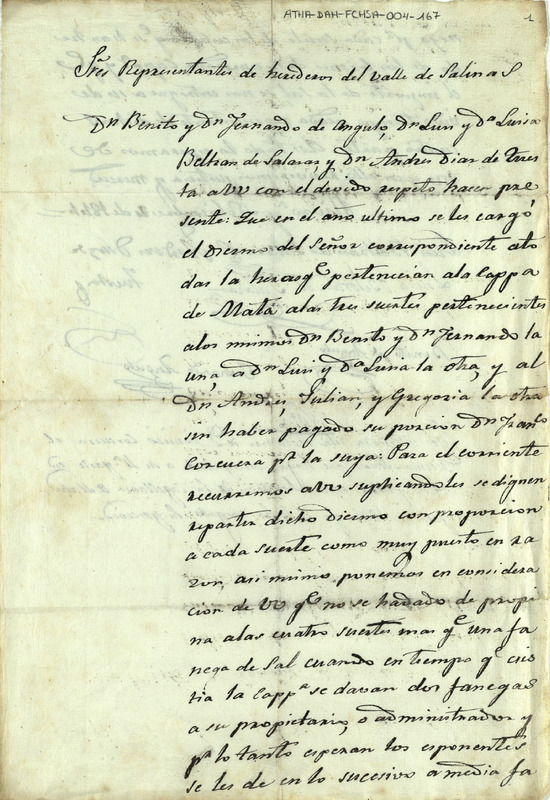 ATHA-DAH-FCHSA-004-167
1
Sres Representantes de herederos del valle de Salinas
Dn Benito y Dn Fernando de Angulo, Dn Luis y Da Luisa
Beltran de Salazar, y Dn Andres Diaz de Tues
ta a VV con el devido respeto hacen pre
sente: Que en el año ultimo se les cargó
el Diezmo del Señor correspondiente ato
das la heras qe pertenecian ala Cappa
de Mata alas tres suertes pertenecientes
alos mimos Dn Benito y Dn Fernando la
una, a Dn Luis y Da Luisa la otra, y al
Dn Andres, Julian, y Gregoria la otra
sin haber pagado su porcion Dn Franco
Corcuera pr la suya: Para el corriente
recurremos a VV suplicandoles se dignen
repartir dicho diezmo con proporcion
a cada suerte como muy puesto en ra
zon, asi mimo ponemos en considera
cion de VV qe no se ha dado de propi
na alas cuatro suertes mas qe una fa
nega de Sal cuando en tiempo qe exis
tia la Cappa se davan dos fanegas
a su propietario, o administrador y
pr lo tanto esperan los esponentes
se les de en lo sucesivo a media fa